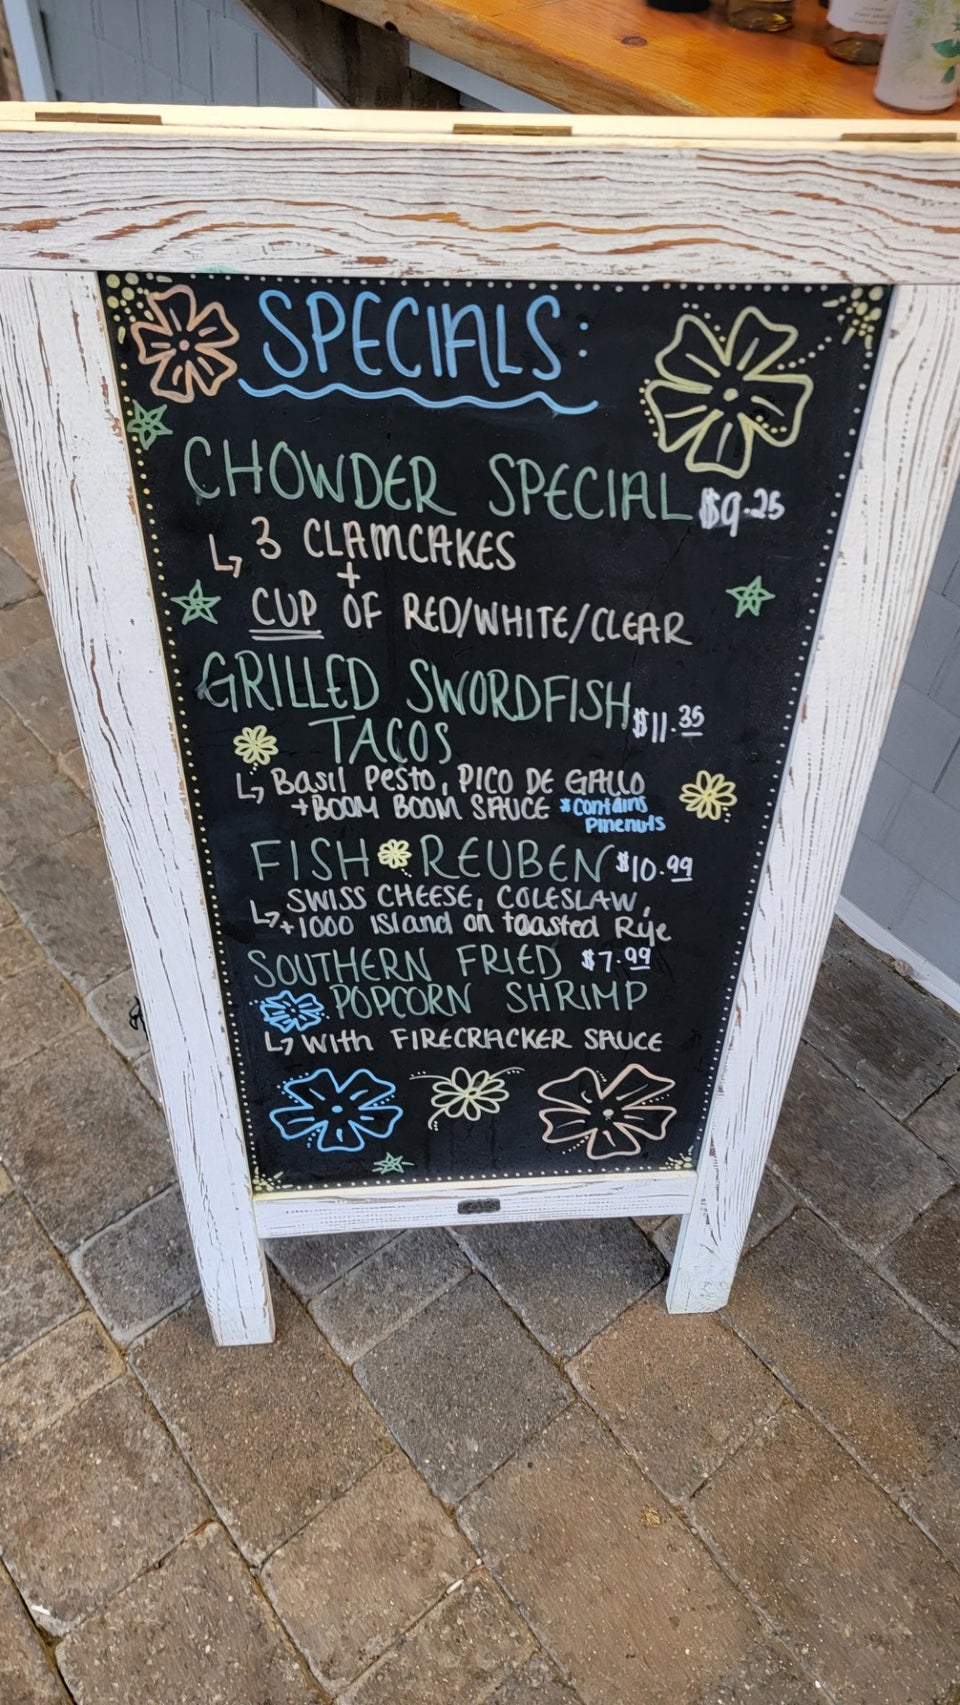 SPECIALS:
CHOWDER SPECIAL $9.25
↳ 3 CLAMCAKES
+
CUP OF RED/WHITE/CLEAR
GRILLED SWORDFISH $11.35
TACOS
↳ Basil Pesto, PICO DE GALLO
+ BOOM BOOM SAUCE *contains
Pinenuts
FISH REUBEN $10.99
↳ SWISS CHEESE, COLESLAW,
+ 1000 Island on toasted Rye
SOUTHERN FRIED $7.99
POPCORN SHRIMP
↳ with FIRECRACKER SAUCE